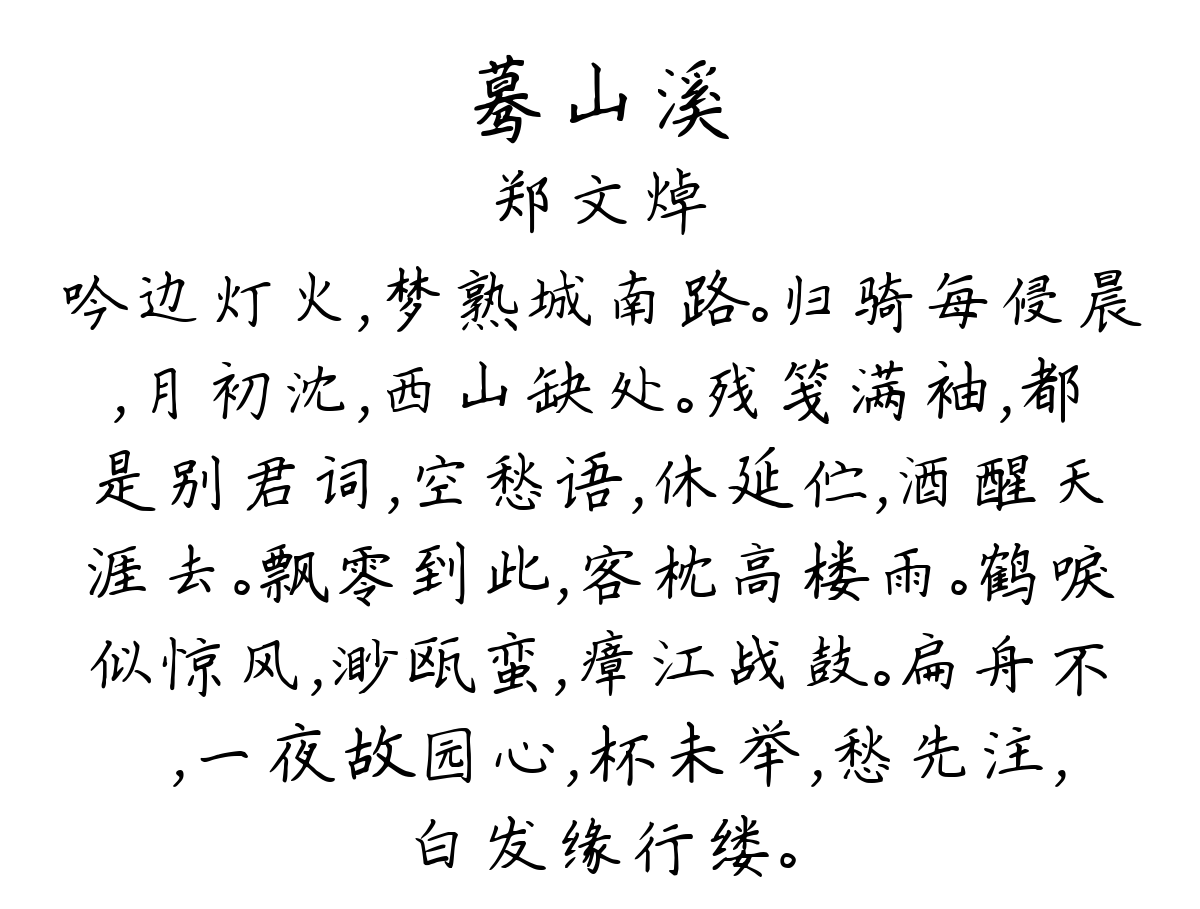 蓦山溪
郑文焯
吟边灯火,梦熟城南路。归骑每侵晨
,月初沈,西山缺处。残笺满袖,都
是别君词,空愁语,休延伫,酒醒天
涯去。飘零到此,客枕高楼雨。鹤唳
似惊风,渺瓯蛮,瘴江战鼓。扁舟不
,一夜故园心,杯未举,愁先注,
白发缘行缕。